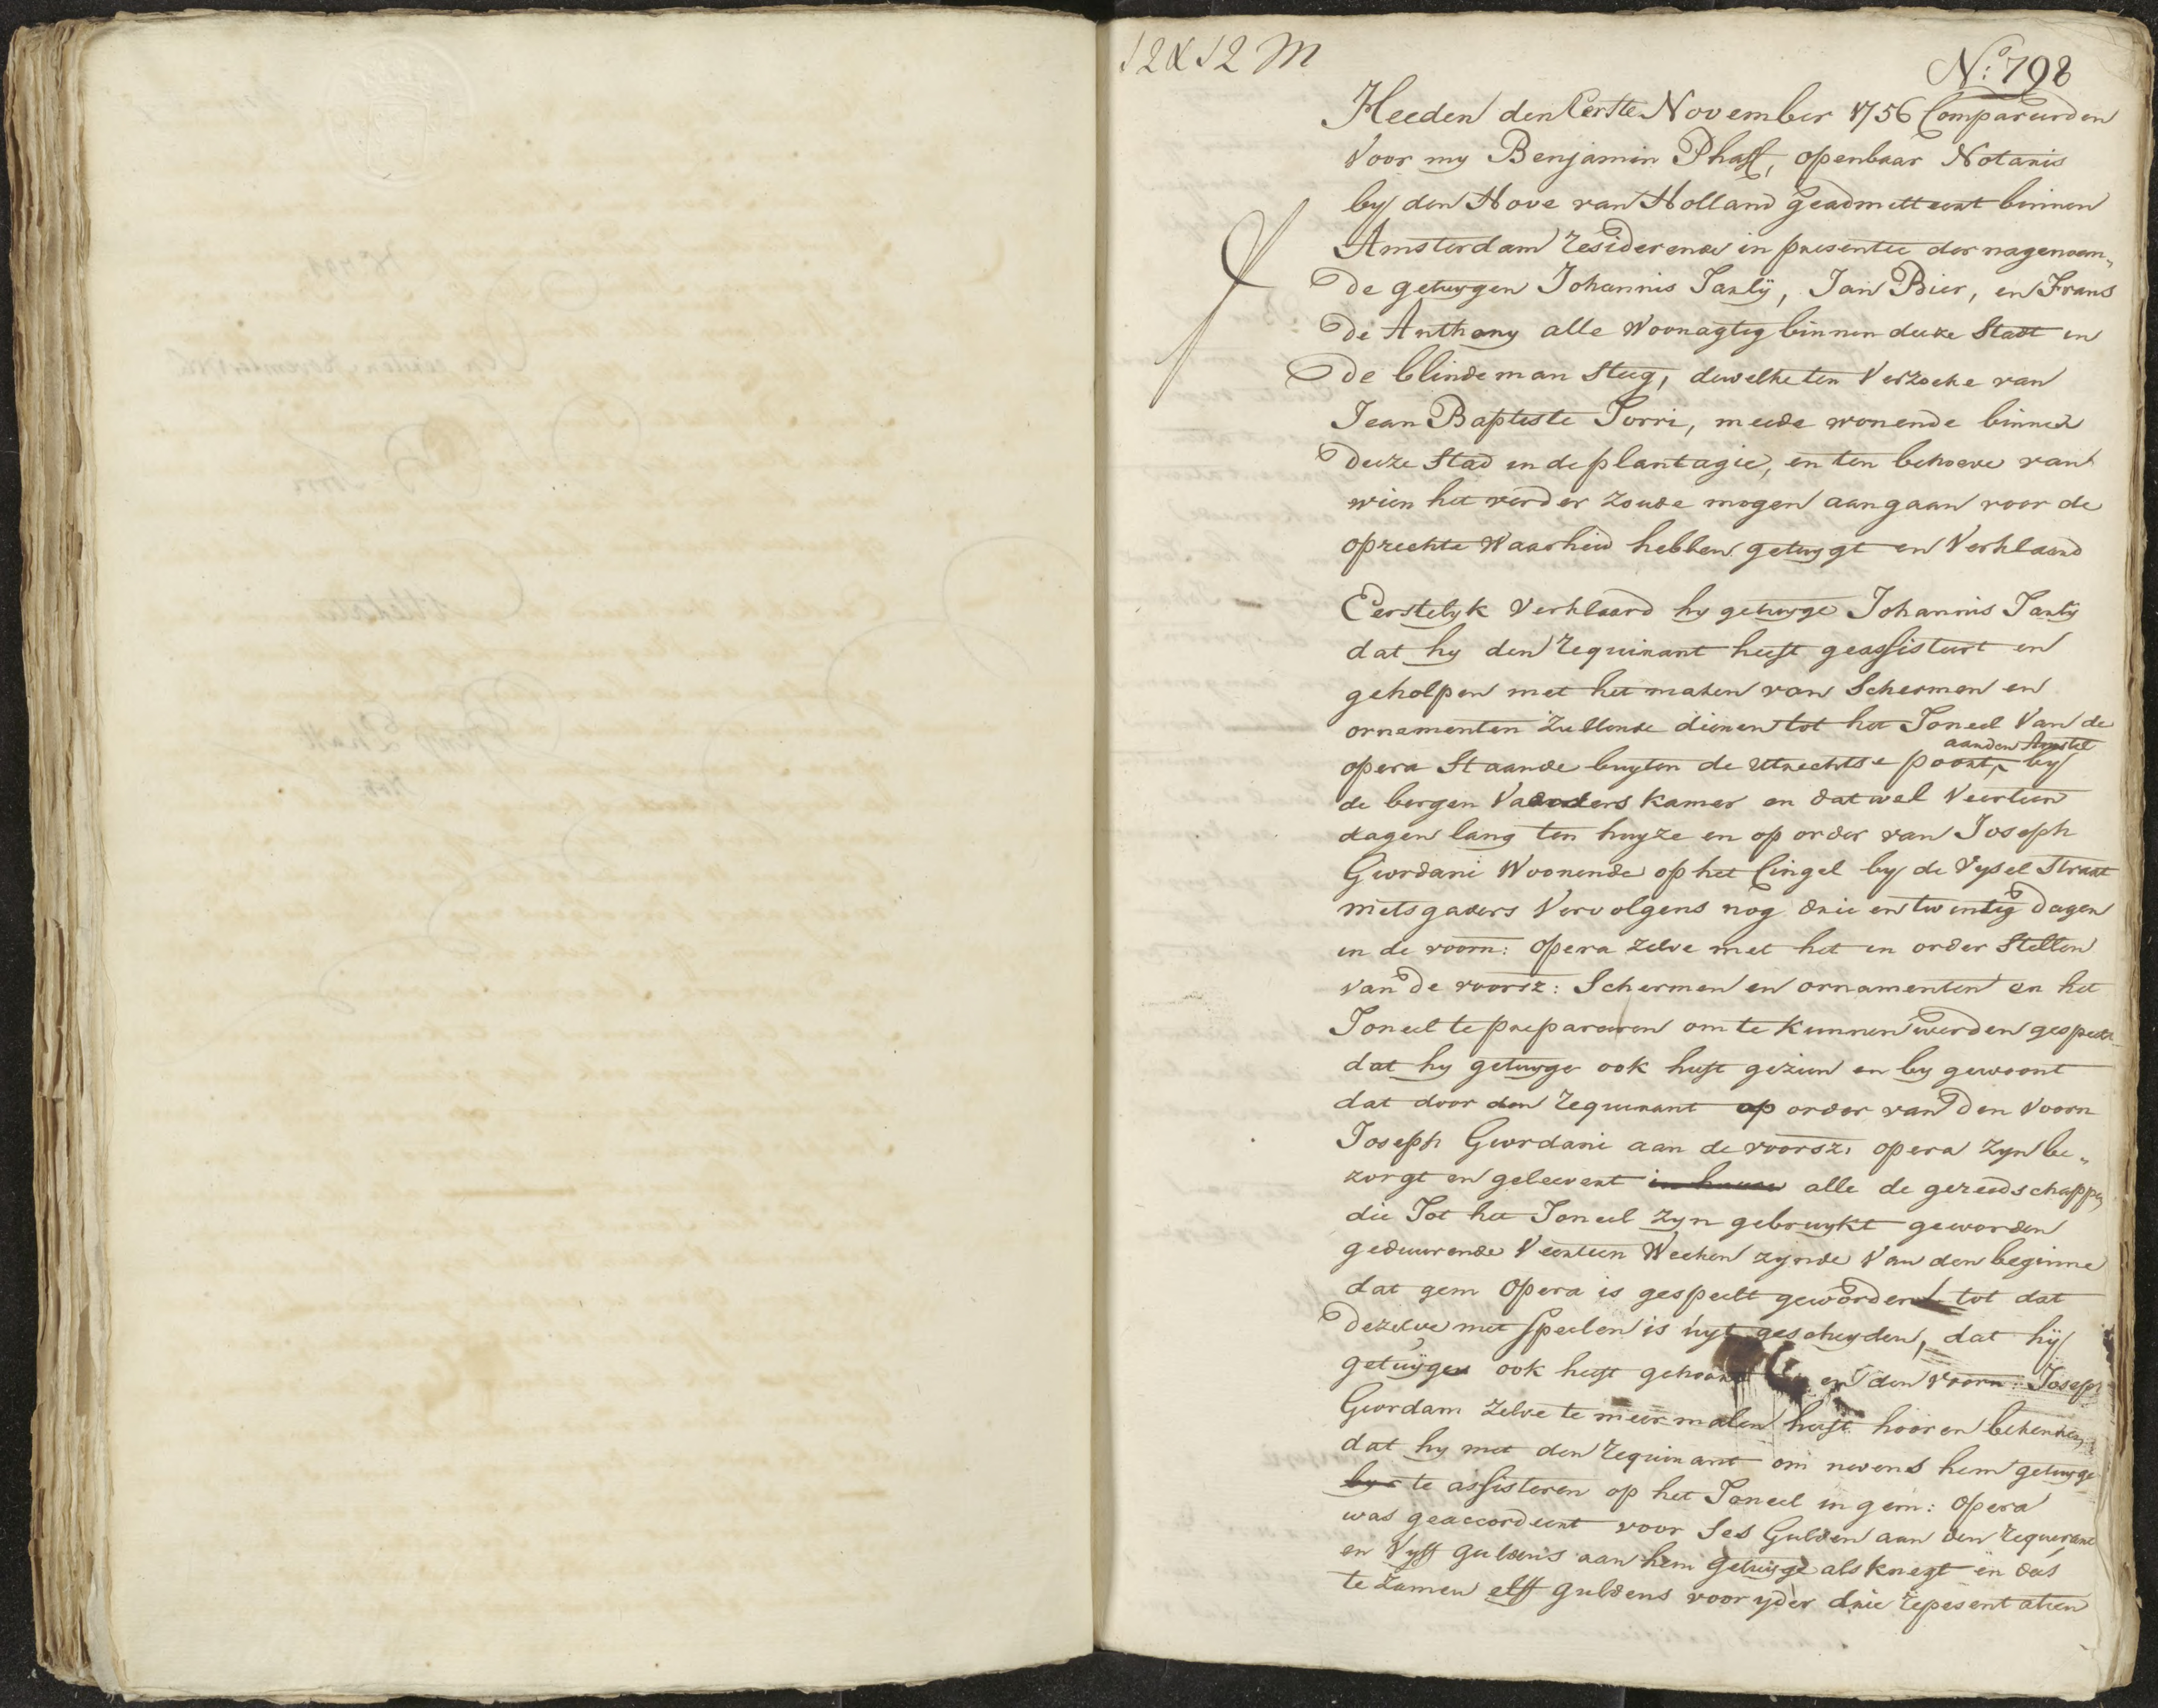 12 & 12 M
N:o 798
Heeden den Eerste November 1756 Compareerden
Voor my Benjamin Phaff, openbaar Notaris
by den Hove van Holland geadmitteert binnen
Amsterdam residerende in presentie der nagenoem„
de getuygen Johannis Janly, Jan Bier, en Frans
de Anthony alle Woonagtig binnen deeze Stadt in
de blindeman Steeg, dewelke ten Verzoeke van
Jean Baptiste Torri, meede wonende binnen
deeze Stad in de plantagie, en ten behoeve van
wien het verder zoude mogen aangaan voor de
oprechte Waarheid hebben getuygt en Verklaard
Eerstelyk Verklaard hy getuyge Johannis Janly
dat hy den requirant heeft geassisteert en
geholpen met het maken van Schermen en
ornementen zullende dienen tot het Toneel Van de
aan den Amstel
opera Staande buyten de Utrechtse poort, by
de bergen Vaarders kamer en dat wel Veertien
dagen lang ten huyze en op order van Joseph
Giordani Woonende op het Cingel by de Vysel Straat
mitsgaders Vervolgens nog drie en twintig dagen
in de voorn: opera zelve met het in order Stellen
van de voorsz: Schermen en ornamenten en het
Toneel te prepareren om te kunnen werden gespeelt
dat hy getuyge ook heeft gezien en by gewoont
dat door den requirant op order van den Voorn
Joseph Giordani aan de voorsz: opera zyn be„
zorgt en geleevert alle de gereedschappen
die Tot het Toneel zyn gebruykt geworden
geduurende Veertien Weeken zynde Van den beginne
dat gem opera is gespeelt geworden tot dat
dezelve met speelen is uyt gescheyden, dat hy
getuygen ook heeft gehoort en den voorn: Joseph
Giordani zelve te meermalen heeft hooren bekennen,
dat hy met den requirant om nevens hem getuyge
te assisteren op het Toneel in gem: opera
was geaccordeert voor Ses Gulden aan den requirant
en Vyff guldens aan hem getuyge als knegt en dus
te zamen elff guldens voor yder drie repesentatien